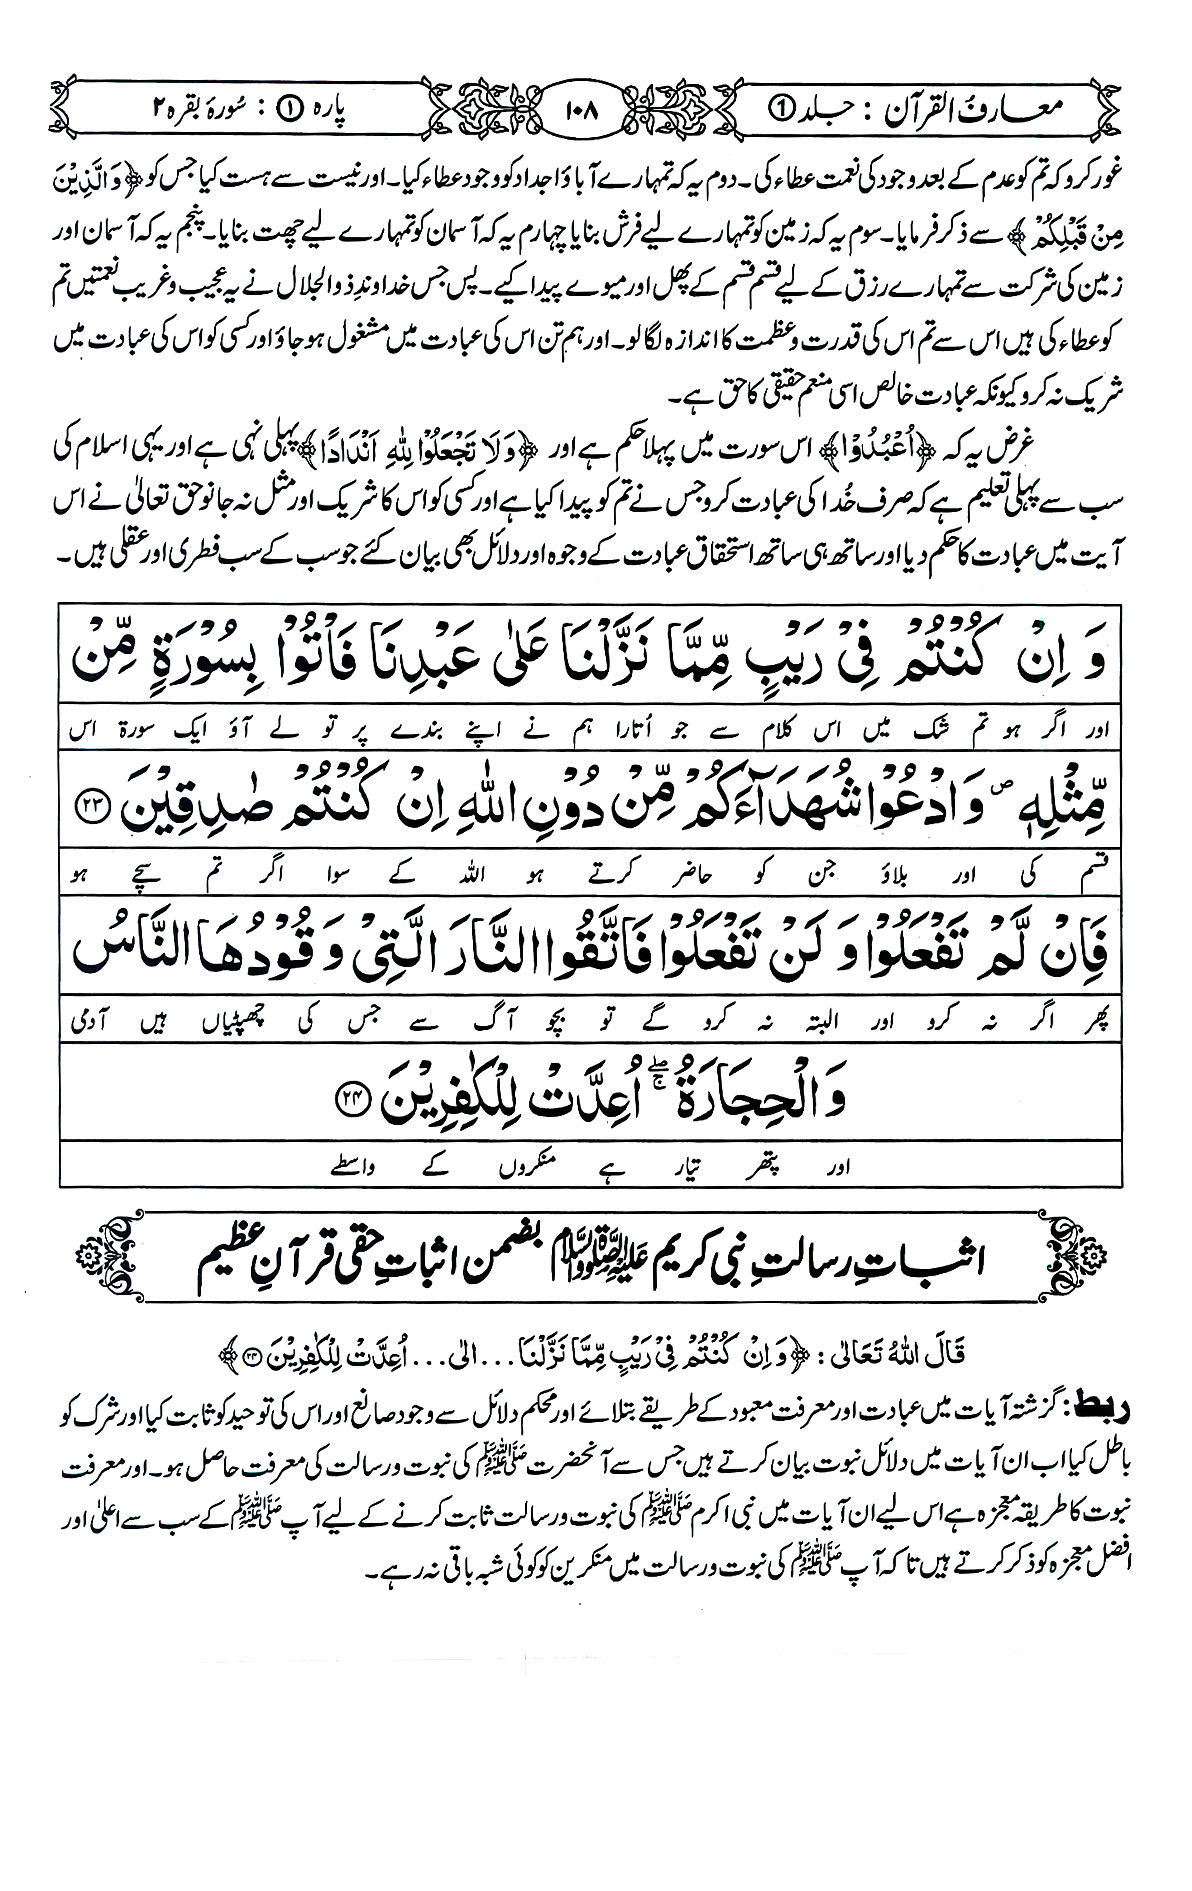 معارف القرآن : جلد ①
۱۰۸
پارہ ① : سُورۂ بقرہ ۲
غور کرو کہ تم کو عدم کے بعد وجود کی نعمت عطاء کی۔ دوم یہ کہ تمہارے آباؤ اجداد کو وجود عطاء کیا۔ اور نیست سے ہست کیا جس کو ﴿وَالَّذِیْنَ
مِنْ قَبْلِكُمْ﴾ سے ذکر فرمایا۔ سوم یہ کہ زمین کو تمہارے لیے فرش بنایا چہارم یہ کہ آسمان کو تمہارے لیے چھت بنایا۔ پنجم یہ کہ آسمان اور
زمین کی شرکت سے تمہارے رزق کے لیے قسم قسم کے پھل اور میوے پیدا کیے۔ پس جس خداوندِ ذوالجلال نے یہ عجیب و غریب نعمتیں تم
کو عطاء کی ہیں اس سے تم اس کی قدرت و عظمت کا اندازہ لگالو۔ اور ہم تن اس کی عبادت میں مشغول ہو جاؤ اور کسی کو اس کی عبادت میں
شریک نہ کرو کیونکہ عبادت خالص اسی منعم حقیقی کا حق ہے۔
غرض یہ کہ ﴿اُعْبُدُوْا﴾ اس سورت میں پہلا حکم ہے اور ﴿وَلَا تَجْعَلُوْا لِلّٰهِ اَنْدَادًا﴾ پہلی نہی ہے اور یہی اسلام کی
سب سے پہلی تعلیم ہے کہ صرف خُدا کی عبادت کرو جس نے تم کو پیدا کیا ہے اور کسی کو اس کا شریک اور مثل نہ جانو حق تعالیٰ نے اس
آیت میں عبادت کا حکم دیا اور ساتھ ہی ساتھ استحقاق عبادت کے وجوہ اور دلائل بھی بیان کئے جو سب کے سب فطری اور عقلی ہیں۔
وَ اِنْ كُنْتُمْ فِیْ رَیْبٍ مِّمَّا نَزَّلْنَا عَلٰی عَبْدِنَا فَاْتُوْا بِسُوْرَةٍ مِّنْ
اور اگر ہو تم شک میں اس کلام سے جو اُتارا ہم نے اپنے بندے پر تو لے آؤ ایک سورۃ اس
مِّثْلِهٖ ۪ وَادْعُوْا شُهَدَآءَكُمْ مِّنْ دُوْنِ اللّٰهِ اِنْ كُنْتُمْ صٰدِقِیْنَ ﴿۲۳﴾
قسم کی اور بلاؤ جن کو حاضر کرتے ہو اللہ کے سوا اگر تم سچے ہو
فَاِنْ لَّمْ تَفْعَلُوْا وَ لَنْ تَفْعَلُوْا فَاتَّقُوا النَّارَ الَّتِیْ وَقُوْدُهَا النَّاسُ
پھر اگر نہ کرو اور البتہ نہ کرو گے تو بچو آگ سے جس کی چھپٹیاں ہیں آدمی
وَ الْحِجَارَةُ ۖۚ اُعِدَّتْ لِلْكٰفِرِیْنَ ﴿۲۴﴾
اور پتھر تیار ہے منکروں کے واسطے
اثبات رسالتِ نبی کریم علیہ الصلوٰۃ والسلام بضمن اثباتِ حقی قرآنِ عظیم
قَالَ اللهُ تَعَالٰی : ﴿وَاِنْ كُنْتُمْ فِیْ رَیْبٍ مِّمَّا نَزَّلْنَا...الی... اُعِدَّتْ لِلْكٰفِرِیْنَ ﴿۲۴﴾﴾
ربط: گزشتہ آیات میں عبادت اور معرفت معبود کے طریقے بتلائے اور محکم دلائل سے وجود صانع اور اس کی توحید کو ثابت کیا اور شرک کو
باطل کیا اب ان آیات میں دلائل نبوت بیان کرتے ہیں جس سے آنحضرت ﷺ کی نبوت و رسالت کی معرفت حاصل ہو۔ اور معرفت
نبوت کا طریقہ معجزہ ہے اس لیے ان آیات میں نبی اکرم ﷺ کی نبوت و رسالت ثابت کرنے کے لیے آپ ﷺ کے سب سے اعلیٰ اور
افضل معجزہ کو ذکر کرتے ہیں تاکہ آپ ﷺ کی نبوت و رسالت میں منکرین کو کوئی شبہ باقی نہ رہے۔